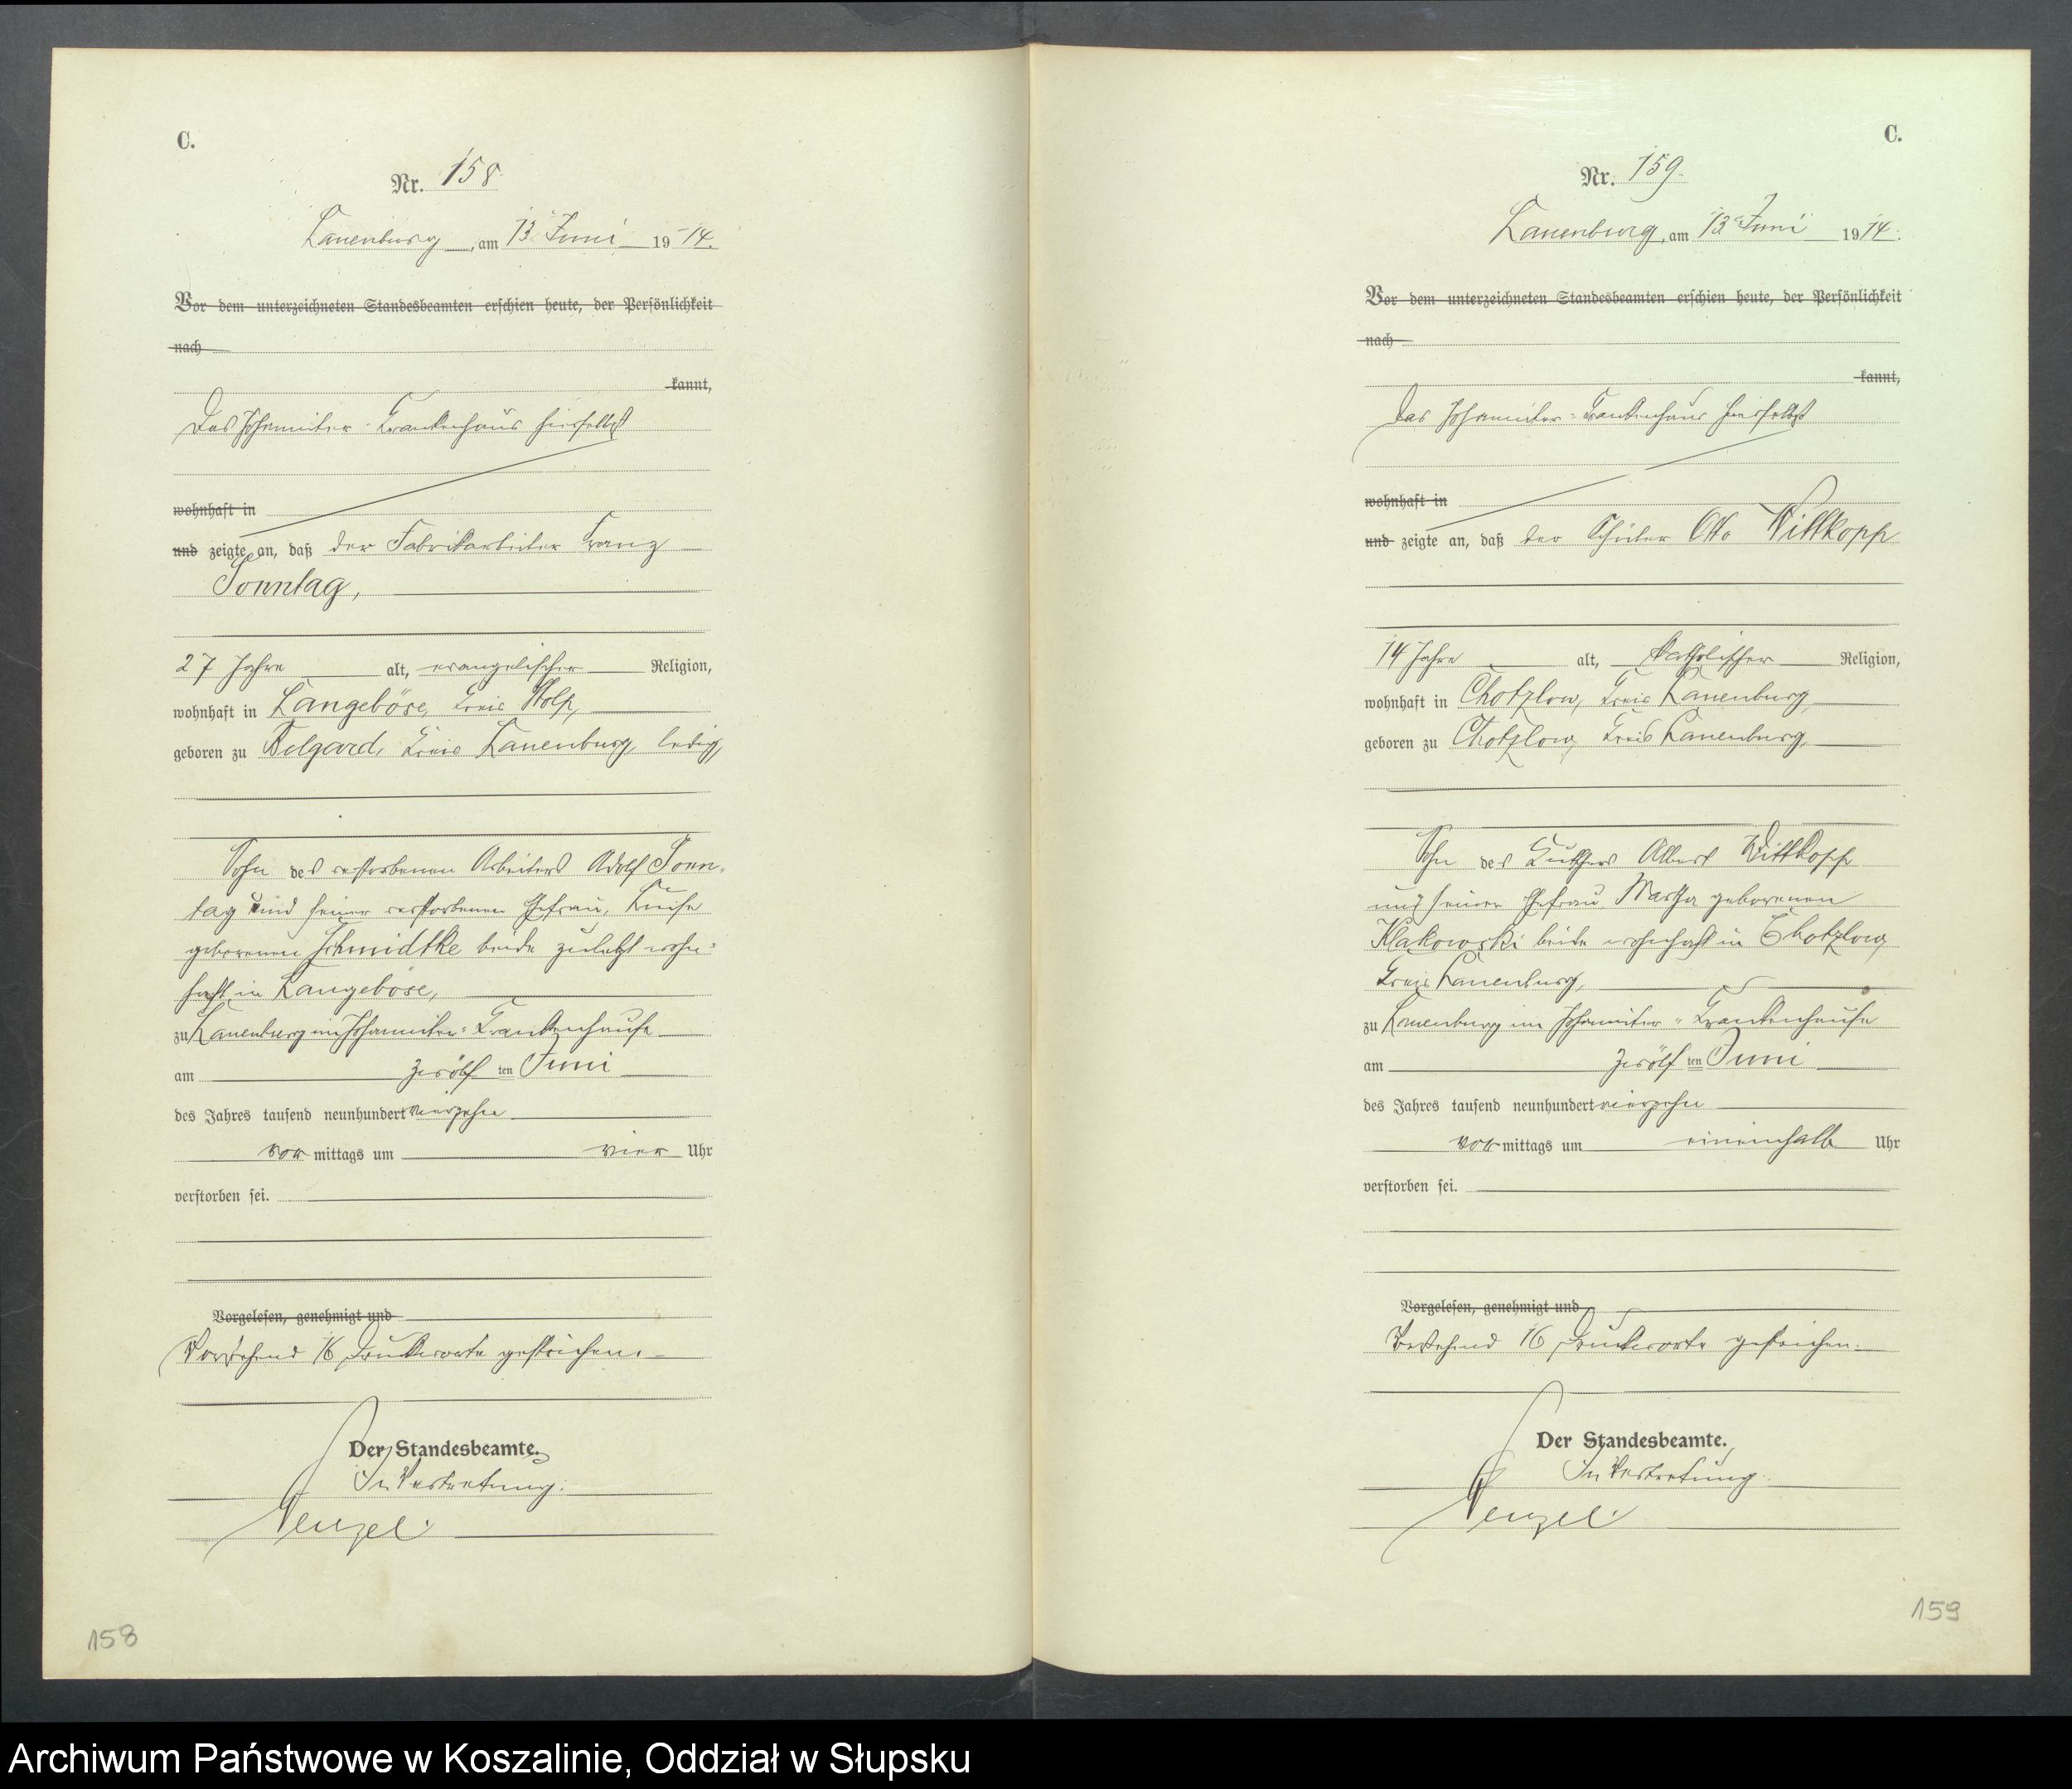 C.
Nr. 158
Lauenburg, am 13. Juni 1914.
Vor dem unterzeichneten Standesbeamten erschien heute, der Persönlichkeit
nach
kannt,
Das Johanniter-Krankenhaus hierselbst
wohnhaft in
und zeigte an, daß der Fabrikarbeiter Franz
Sonntag,
27 Jahre alt, evangelischer Religion,
wohnhaft in Langeböse, Kreis Stolp,
geboren zu Belgard, Kreis Lauenburg, ledig,
Sohn des verstorbenen Arbeiters Adolf Sonn-
tag und seiner verstorbenen Ehefrau, Luise
geborenen Schmidtke beide zuletzt wohn-
haft in Langeböse,
zu Lauenburg im Johanniter-Krankenhause
am zwölf ten Juni
des Jahres tausend neunhundert vierzehn
vormittags um vier Uhr
verstorben sei.
Vorgelesen, genehmigt und
Vorstehend 16 Druckworte gestrichen.
Der Standesbeamte.
In Vertretung:
Wenzel.
158
C.
Nr. 159.
Lauenburg, am 13. Juni 1914.
Vor dem unterzeichneten Standesbeamten erschien heute, der Persönlichkeit
nach
kannt,
Das Johanniter-Krankenhaus hierselbst
wohnhaft in
und zeigte an, daß der Schüler Otto Wittkopp
14 Jahre alt, katholischer Religion,
wohnhaft in Chotzlow, Kreis Lauenburg,
geboren zu Chotzlow, Kreis Lauenburg,
Sohn des Albert Wittkopp
und seiner Ehefrau Martha geborenen
Klakowski beide wohnhaft in Chotzlow
Kreis Lauenburg,
zu Lauenburg im Johanniter-Krankenhause
am zwölf ten Juni
des Jahres tausend neunhundert vierzehn
vormittags um eineinhalb Uhr
verstorben sei.
Vorgelesen, genehmigt und
Vorstehend 16 Druckworte gestrichen.
Der Standesbeamte.
In Vertretung.
Wenzel.
159
Archiwum Państwowe w Koszalinie, Oddział w Słupsku